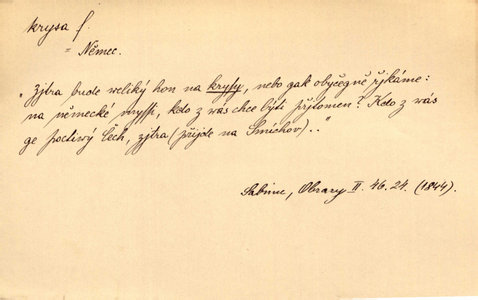 krysa f.
= Němec.
"Zjtra bude weliký hon na kryſy, nebo gak obyčegně řjkáme:
na německé myſſi, kdo z was chce býti přjtomen? Kdo z wás
ge poctiwý Čech, zjtra (přijde na Smíchov).."
Sabina, Obrazy II. 46.24. (1844).